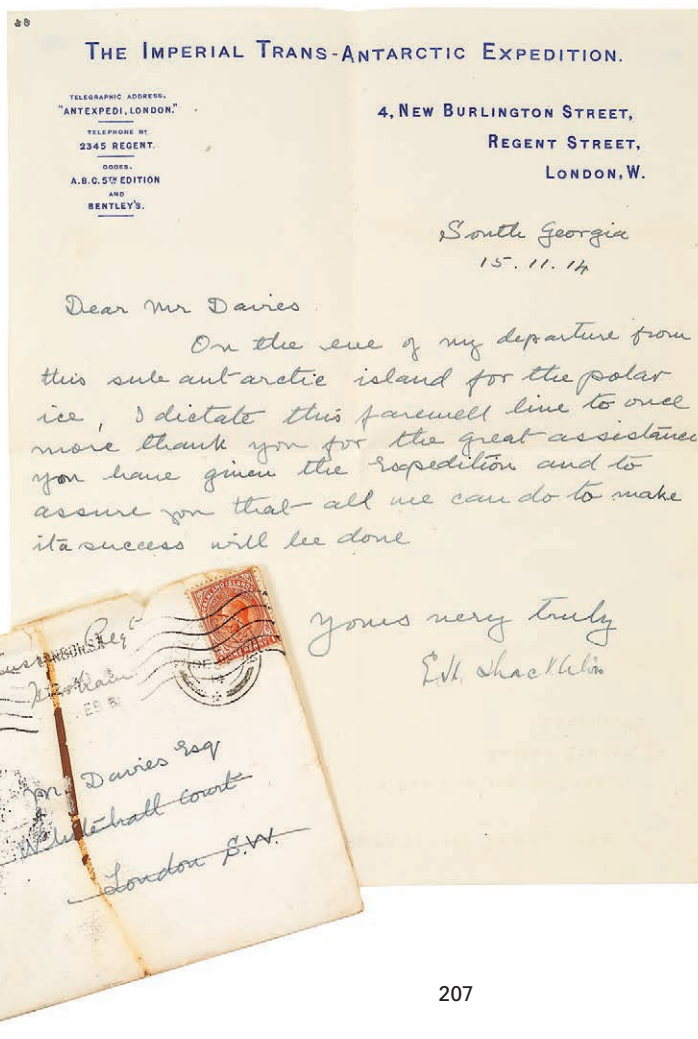 THE IMPERIAL TRANS-ANTARCTIC EXPEDITION.
TELEGRAPHIC ADDRESS.
"ANTEXPEDI, LONDON."
TELEPHONE No
2345 REGENT.
CODES.
A.B.C. 5TH EDITION
AND
BENTLEY'S.
4, NEW BURLINGTON STREET,
REGENT STREET,
LONDON, W.
South Georgia
15.11.14
Dear Mr Davies
On the eve of my departure from
this sub antarctic island for the polar
ice, I dictate this farewell line to once
more thank you for the great assistance
you have given the Expedition and to
assure you that all we can do to make
it a success will be done
Yours very truly
E.H. Shackleton
FALKLAND ISLANDS
Regt
Davies Esq
Whitehall Court
London S.W.
207